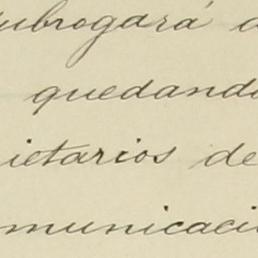 ubrogará a
quedando
ietarios de
municaci